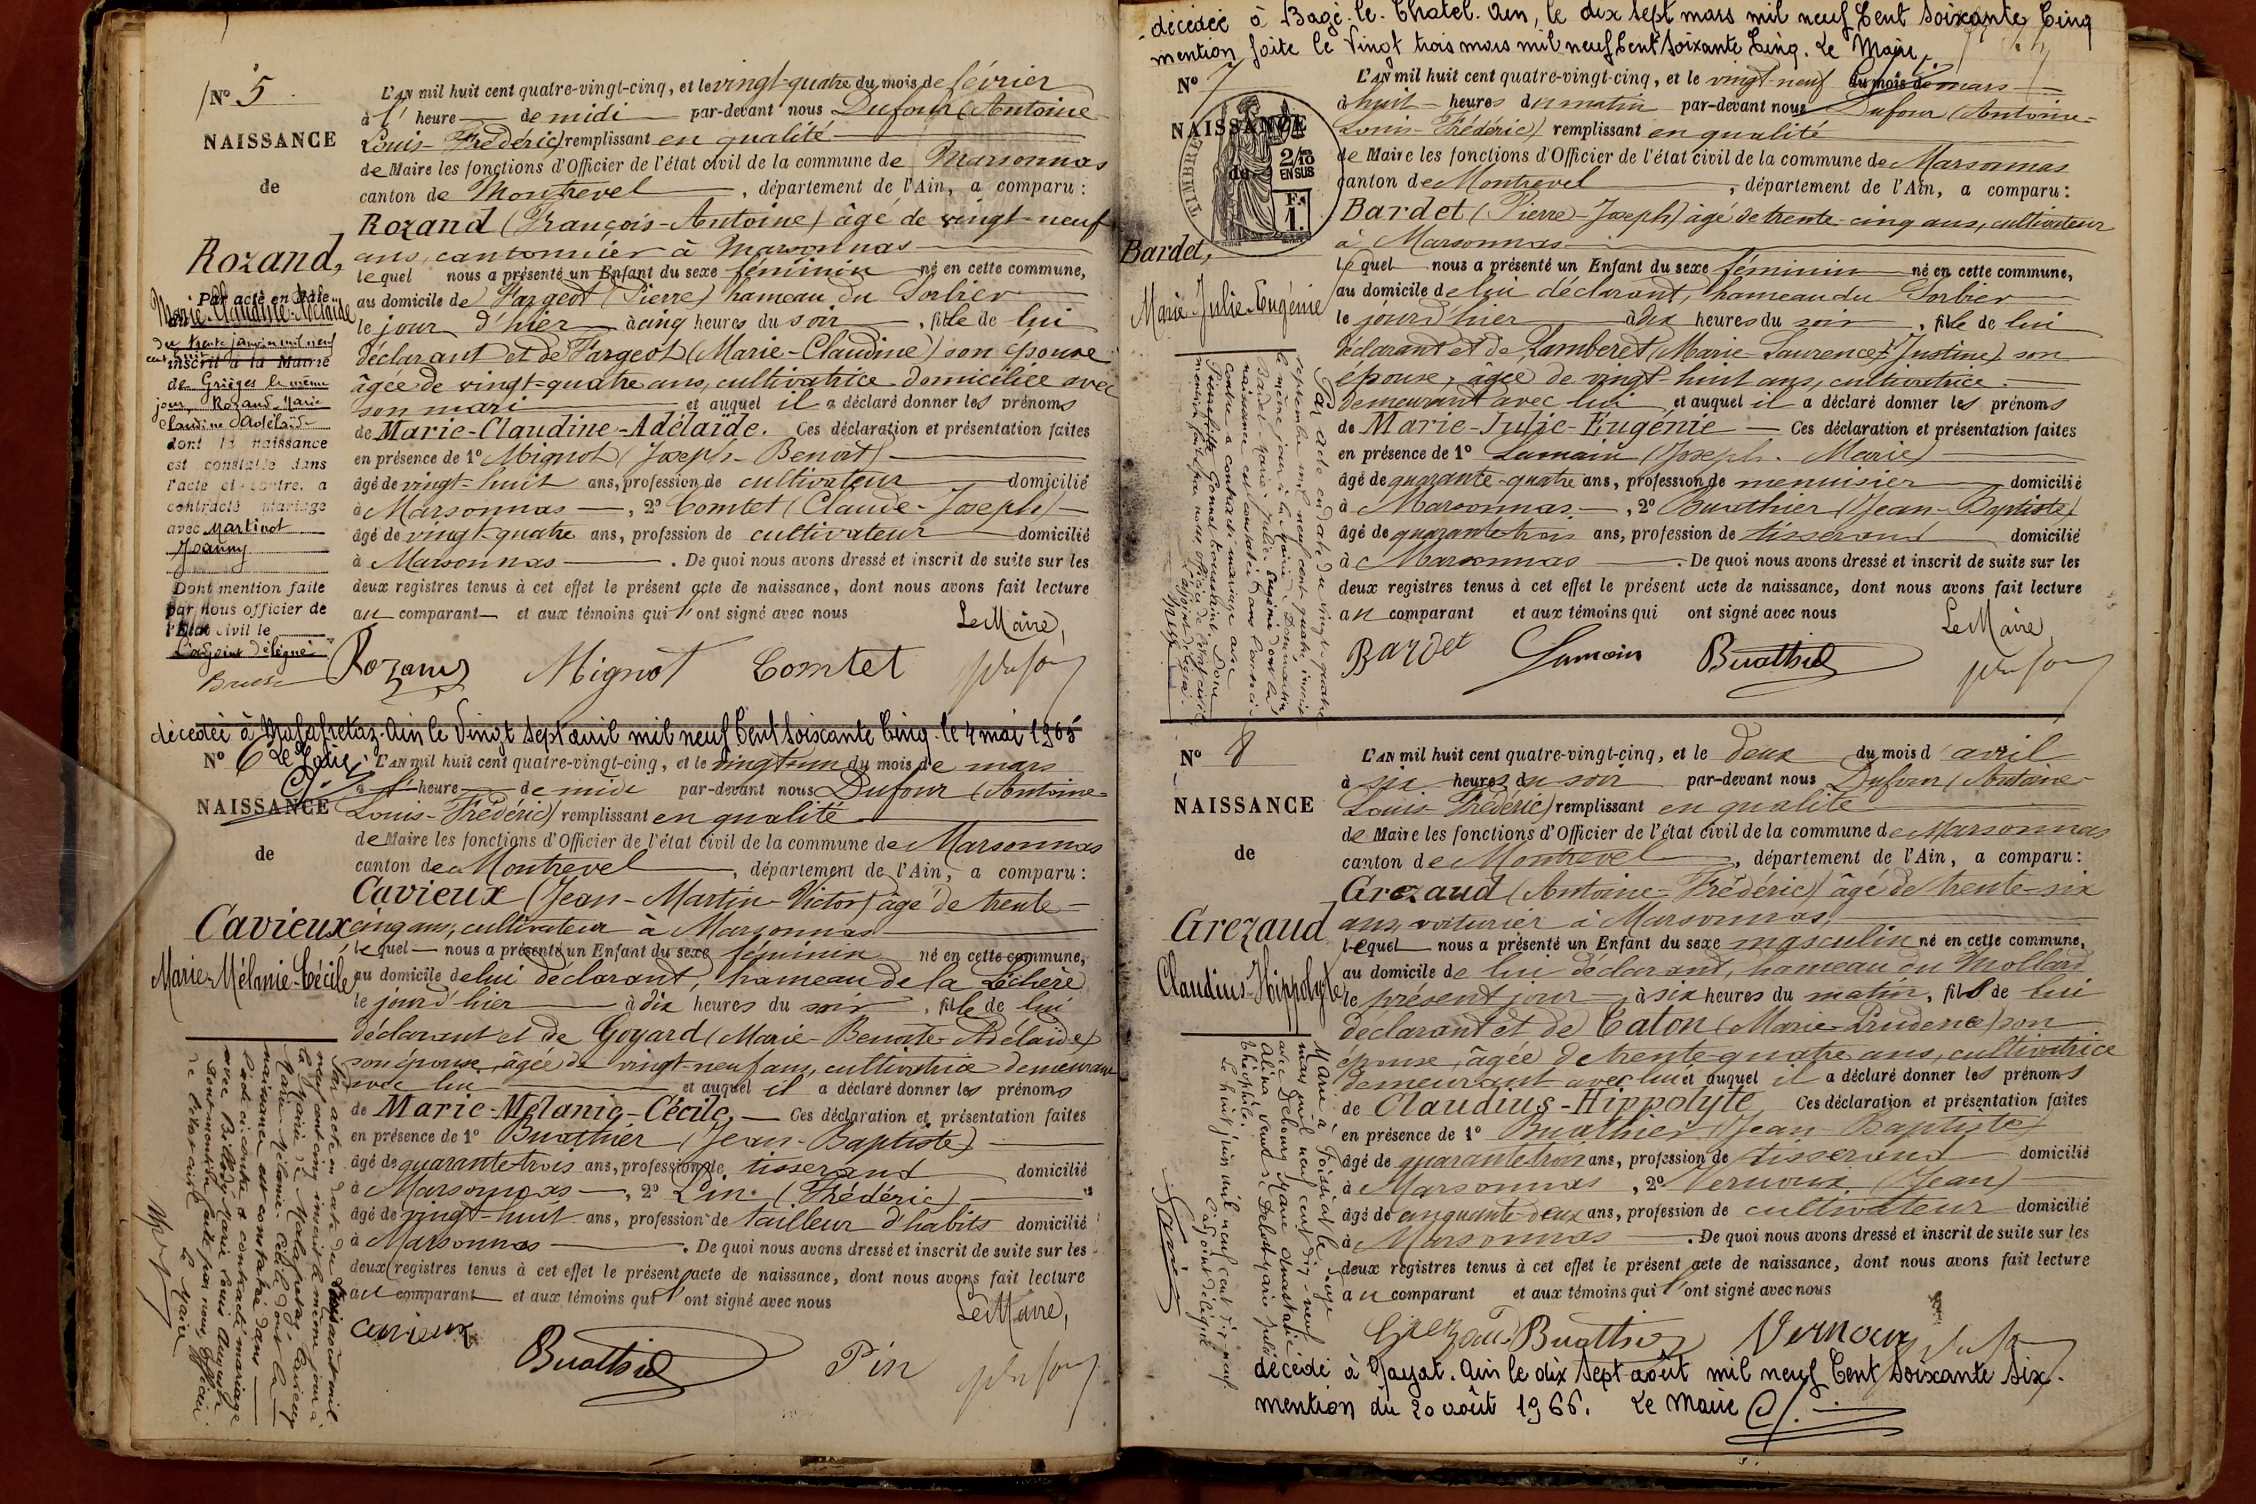 N° 5
NAISSANCE
de
Rozand,
Marie-Claudine-Adélaïde
Par acte en date
du trente janvier mil neuf
cent huit
inscrit à la Mairie
de Grièges le même
jour, Rozand Marie
Claudine Adélaïde
dont la naissance
est constatée dans
l'acte ci-contre, a
contracté mariage
avec Martinot
Joanny
Dont mention faite
par nous officier de
l'Etat civil le
L'adjoint délégué
L'AN mil huit cent quatre-vingt-cinq, et le vingt-quatre du mois de février
à l' heure de midi par-devant nous Dufour (Antoine-
Louis-Frédéric) remplissant en qualité
de Maire les fonctions d'Officier de l'état civil de la commune de Marsonnas
canton de Montrevel, département de l'Ain, a comparu :
Rozand (François-Antoine) âgé de vingt-neuf
ans, cantonnier à Marsonnas
lequel nous a présenté un Enfant du sexe féminin né en cette commune,
au domicile de Fargeot (Pierre) hameau du Sorbier
le jour d'hier à cinq heures du soir, fille de lui
déclarant et de Fargeot (Marie-Claudine) son épouse
âgée de vingt-quatre ans, cultivatrice domiciliée avec
son mari et auquel il a déclaré donner les prénoms
de Marie-Claudine-Adélaïde. Ces déclaration et présentation faites
en présence de 1° Mignot (Joseph-Benoît)
âgé de vingt-huit ans, profession de cultivateur domicilié
à Marsonnas, 2° Comtet (Claude-Joseph)
âgé de vingt-quatre ans, profession de cultivateur domicilié
à Marsonnas. De quoi nous avons dressé et inscrit de suite sur les
deux registres tenus à cet effet le présent acte de naissance, dont nous avons fait lecture
au comparant et aux témoins qui l'ont signé avec nous
Le Maire,
Rozand Mignot Comtet
décédée à Malafretaz. Ain le Vingt Sept avril mil neuf Cent Soixante Cinq. le 4 mai 1965
Le Maire
N° 6
NAISSANCE
de
Cavieux
Marie-Mélanie-Cécile
L'AN mil huit cent quatre-vingt-cinq, et le vingt-un du mois de mars
à l' heure de midi par-devant nous Dufour (Antoine-
Louis-Frédéric) remplissant en qualité
de Maire les fonctions d'Officier de l'état civil de la commune de Marsonnas
canton de Montrevel, département de l'Ain, a comparu :
Cavieux (Jean-Martin-Victor) âgé de trente-
cinq ans, cultivateur à Marsonnas
lequel nous a présenté un Enfant du sexe féminin né en cette commune,
au domicile de lui déclarant, hameau de la Léchère
le jour d'hier à dix heures du soir, fille de lui
déclarant et de Goyard (Marie-Benoite-Adélaïde)
son épouse, âgée de vingt-neuf ans, cultivatrice demeurant
avec lui et auquel il a déclaré donner les prénoms
de Marie-Mélanie-Cécile, Ces déclaration et présentation faites
en présence de 1° Buathier (Jean-Baptiste)
âgé de quarante-trois ans, profession de tisserand domicilié
à Marsonnas, 2° Pin (Frédéric)
âgé de vingt-huit ans, profession de tailleur d'habits domicilié
à Marsonnas. De quoi nous avons dressé et inscrit de suite sur les
deux registres tenus à cet effet le présent acte de naissance, dont nous avons fait lecture
au comparant et aux témoins qui l'ont signé avec nous
Le Maire,
Cavieux Buathier Pin
Par acte en date du août mil
neuf cent cinq inscrit le même jour à
la Mairie de Malafretaz, Cavieux
Marie-Mélanie-Cécile dont la
naissance est constatée dans
l'acte ci-contre a contracté mariage
avec Marie Louis Auguste
Dont mention faite par nous, Officier
de l'état civil
Le Maire
décédée à Bagé-le-Chatel. Ain, le dix Sept mars mil neuf Cent Soixante Cinq
mention faite le Vingt trois mars mil neuf Cent Soixante Cinq. Le Maire,
N° 7
NAISSANCE
de
TIMBRE
2/10
EN SUS
F.
1.
Bardet,
Marie-Julie-Eugénie
L'AN mil huit cent quatre-vingt-cinq, et le vingt-neuf du mois de mars
à huit heures du matin par-devant nous Dufour (Antoine-
Louis-Frédéric) remplissant en qualité
de Maire les fonctions d'Officier de l'état civil de la commune de Marsonnas
canton de Montrevel, département de l'Ain, a comparu :
Bardet (Pierre-Joseph) âgé de trente-cinq ans, cultivateur
à Marsonnas
lequel nous a présenté un Enfant du sexe féminin né en cette commune,
au domicile de lui déclarant, hameau du Sorbier
le jour d'hier à dix heures du soir, fille de lui
déclarant et de Lamberet (Marie-Laurence-Justine) son
épouse, âgée de vingt-huit ans, cultivatrice
demeurant avec lui et auquel il a déclaré donner les prénoms
de Marie-Julie-Eugénie Ces déclaration et présentation faites
en présence de 1° Lamain (Joseph-Marie)
âgé de quarante-quatre ans, profession de menuisier domicilié
à Marsonnas, 2° Buathier (Jean-Baptiste)
âgé de quarante-trois ans, profession de tisserand domicilié
à Marsonnas. De quoi nous avons dressé et inscrit de suite sur les
deux registres tenus à cet effet le présent acte de naissance, dont nous avons fait lecture
au comparant et aux témoins qui ont signé avec nous
Le Maire,
Bardet Lamain Buathier
Par acte en date du vingt-quatre
septembre mil neuf cent quatre, inscrit
le même jour à la Mairie de
Bardet Marie-Julie-Eugénie dont la
naissance est constatée dans l'acte ci-
contre a contracté mariage avec
N° 8
NAISSANCE
de
Grezaud
Claudius-Hippolyte
L'AN mil huit cent quatre-vingt-cinq, et le deux du mois d'avril
à six heures du soir par-devant nous Dufour (Antoine-
Louis-Frédéric) remplissant en qualité
de Maire les fonctions d'Officier de l'état civil de la commune de Marsonnas
canton de Montrevel, département de l'Ain, a comparu :
Grezaud (Antoine-Frédéric) âgé de trente-six
ans, voiturier à Marsonnas,
lequel nous a présenté un Enfant du sexe masculin né en cette commune,
au domicile de lui déclarant, hameau du Mollard
le présent jour, à six heures du matin, fils de lui
déclarant et de Caton (Marie-Prudence) son
épouse, âgée de trente-quatre ans, cultivatrice
demeurant avec lui et auquel il a déclaré donner les prénoms
de Claudius-Hippolyte Ces déclaration et présentation faites
en présence de 1° Buathier (Jean-Baptiste)
âgé de quarante-trois ans, profession de tisserand domicilié
à Marsonnas, 2° Vernoux (Jean)
âgé de cinquante-deux ans, profession de cultivateur domicilié
à Marsonnas. De quoi nous avons dressé et inscrit de suite sur les
deux registres tenus à cet effet le présent acte de naissance, dont nous avons fait lecture
au comparant et aux témoins qui l'ont signé avec nous
Grezaud Buathier Vernoux
Marié à Foissiat le seize
mai mil neuf cent dix-neuf
avec
Le huit juin mil neuf cent dix-neuf.
L'adjoint délégué
décédé à Jayat. Ain le dix Sept août mil neuf Cent Soixante Six.
mention du 20 août 1966. Le Maire